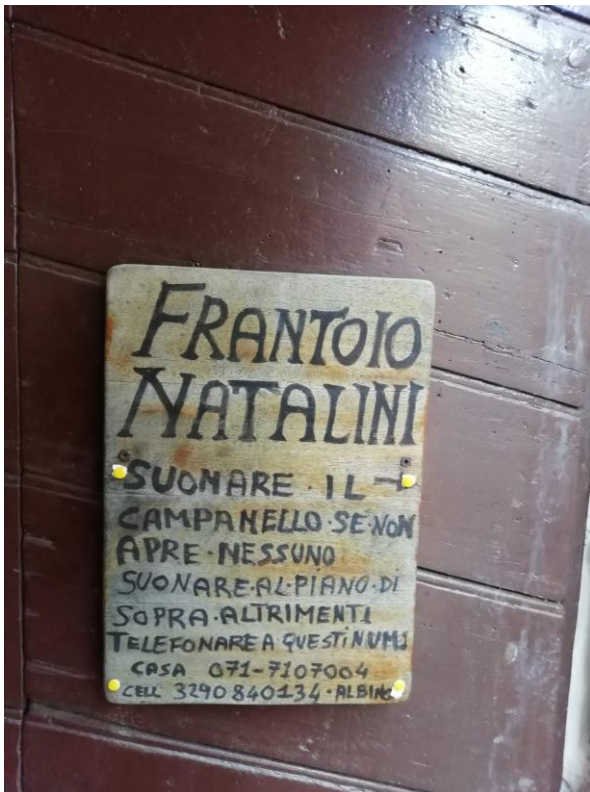 FRANTOIO
NATALINI
SUONARE · IL
CAMPANELLO · SE · NON
APRE · NESSUNO
SUONARE · AL · PIANO · DI
SOPRA · ALTRIMENTI
TELEFONARE A QUESTI NUM
CASA 071-7107004
CELL 3290840134 · ALBINO